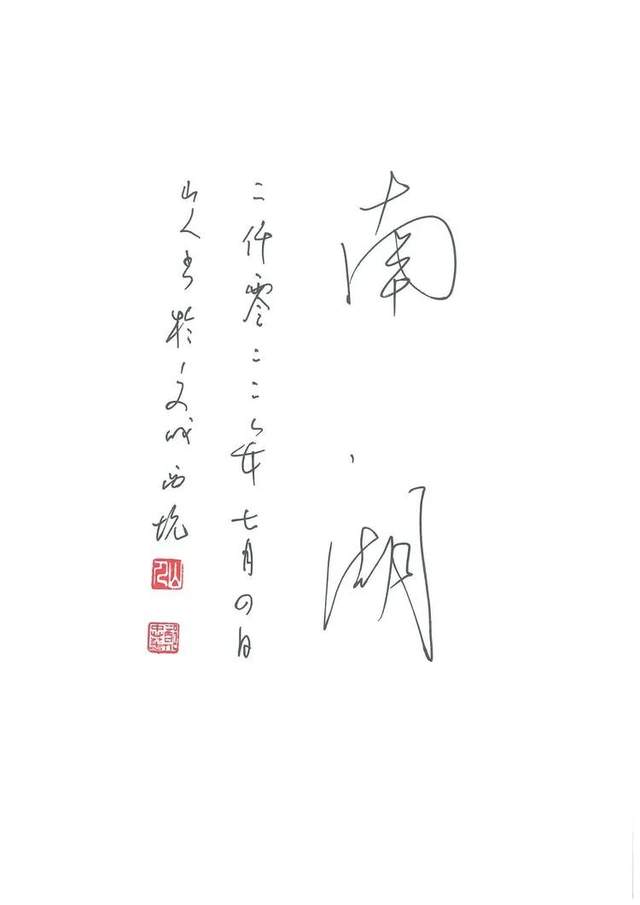 南湖
二仟零二二年七月四日
山人书於文成西坑
山人